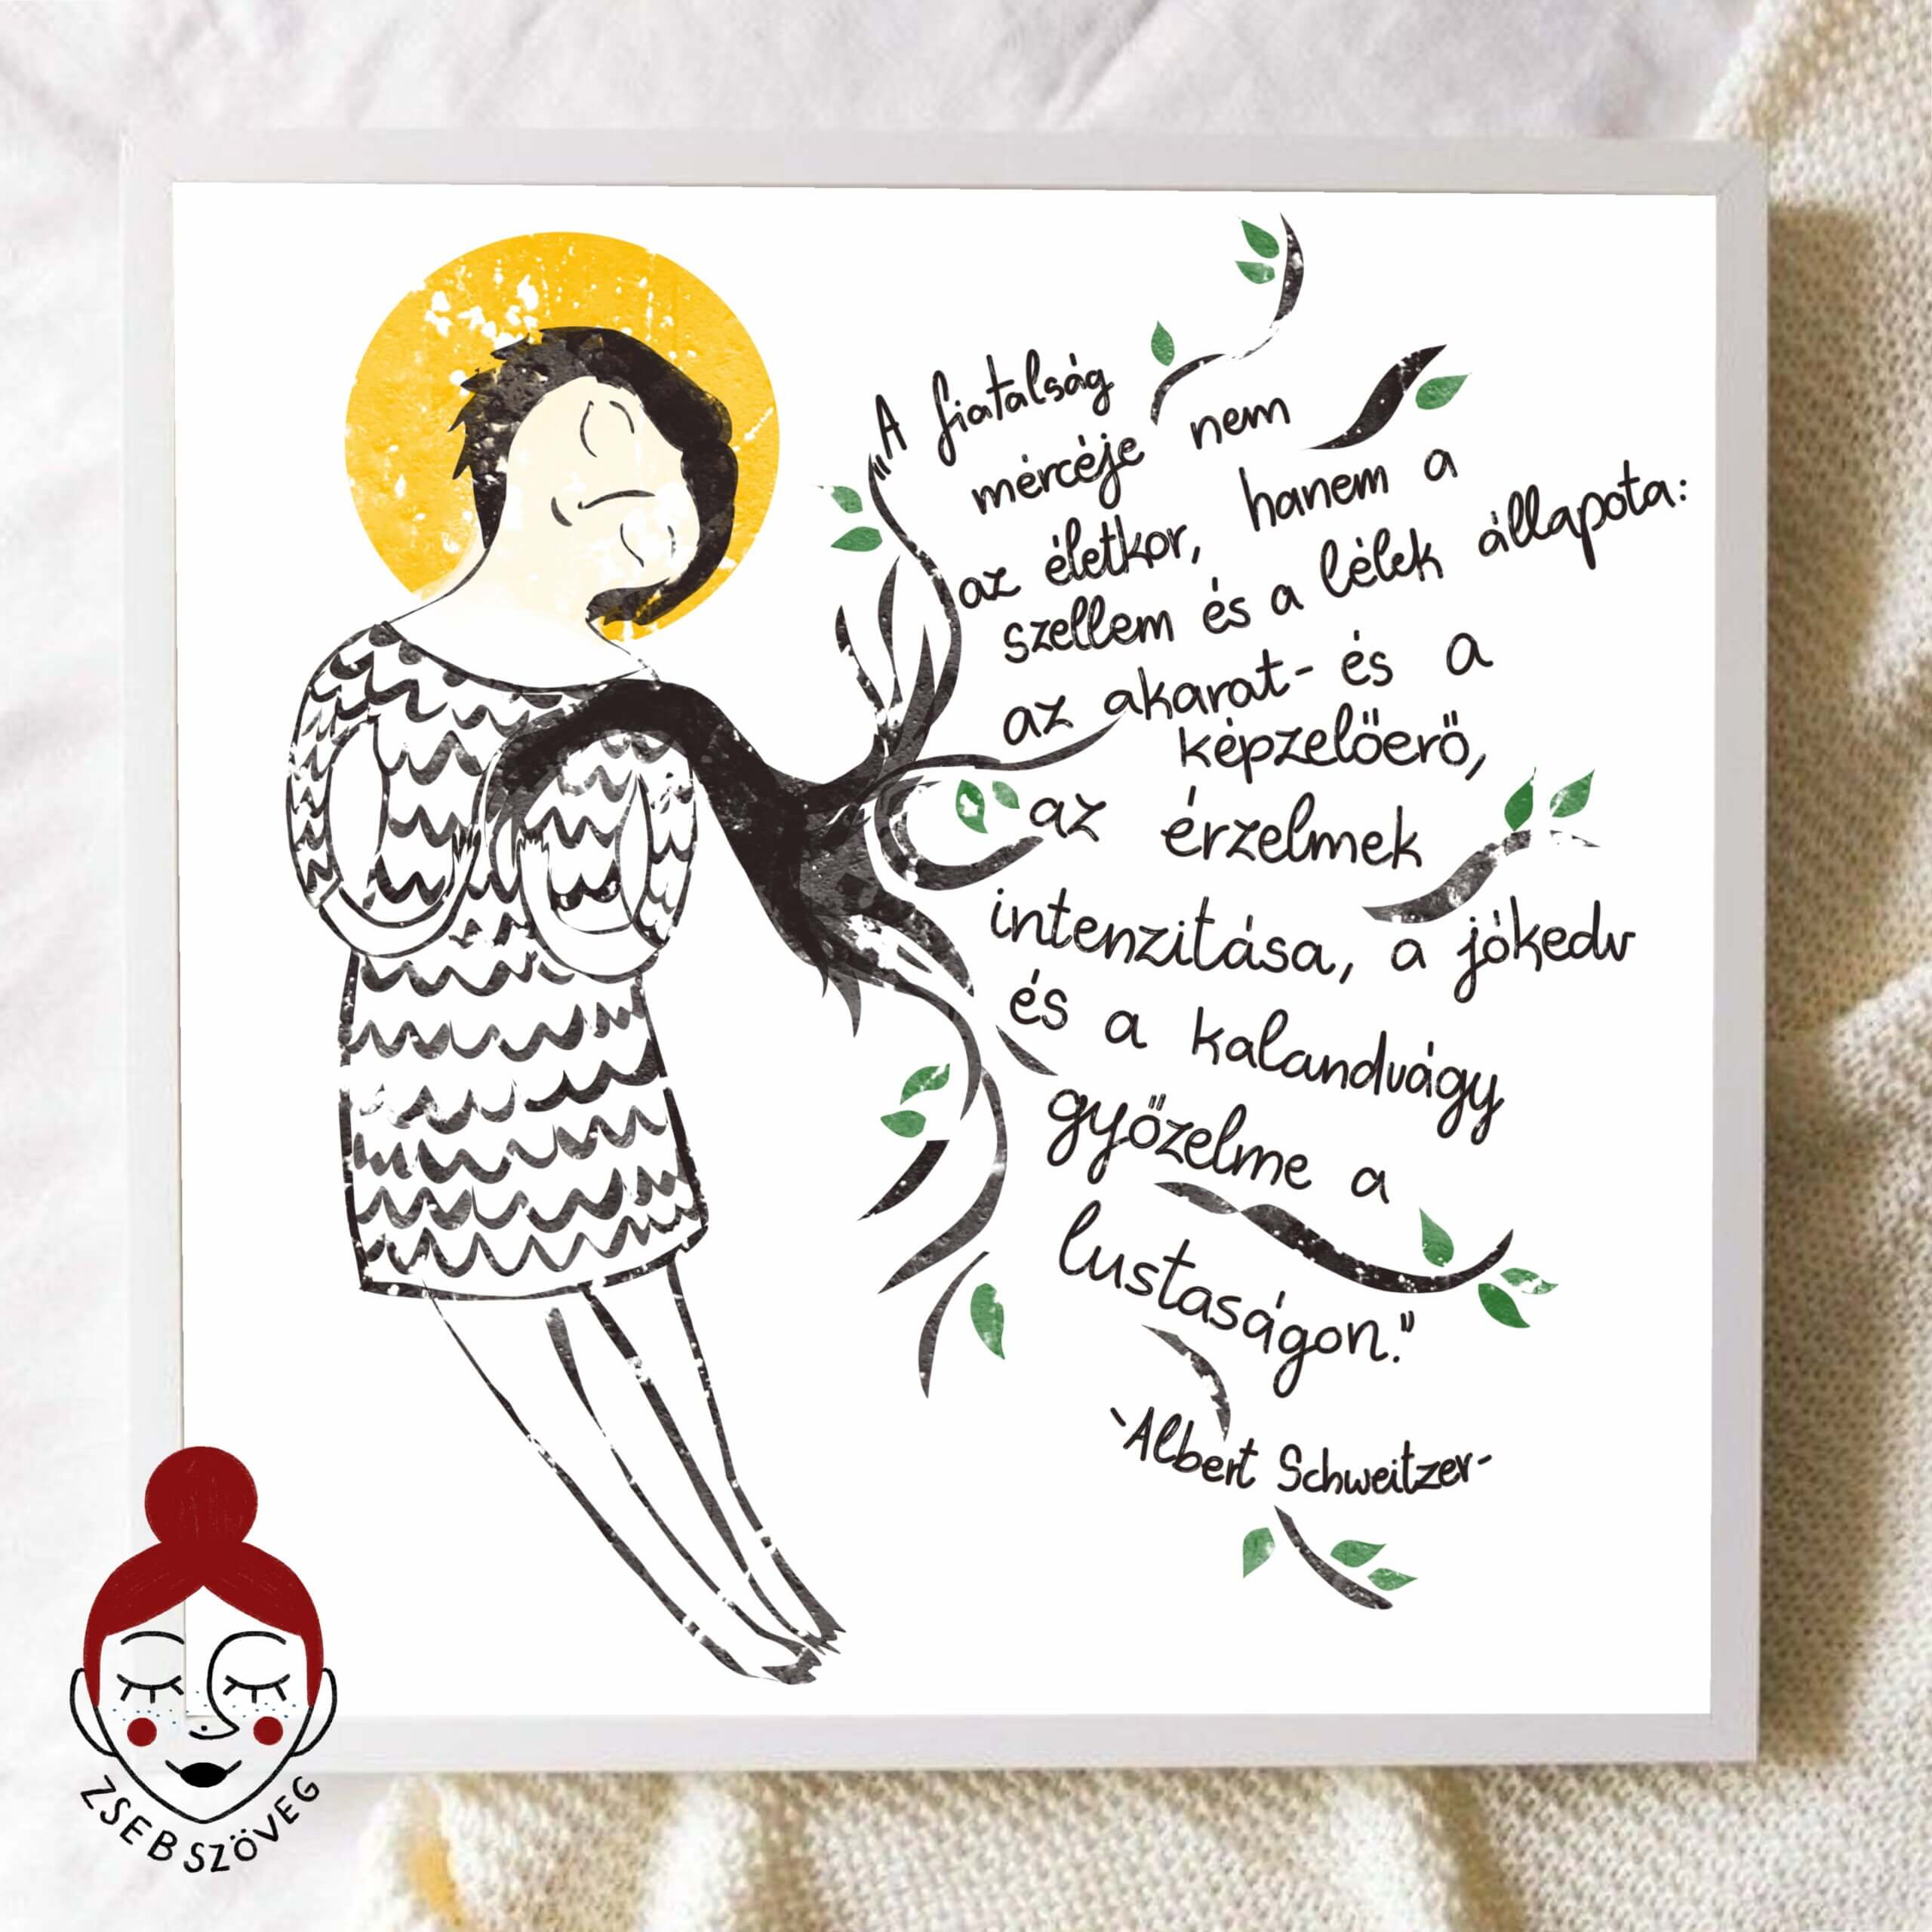 „A fiatalság
mércéje nem
az életkor, hanem a
szellem és a lélek állapota:
az akarat- és a
képzelőerő,
az érzelmek
intenzitása, a jókedv
és a kalandvágy
győzelme a
lustaságon."
-Albert Schweitzer-
ZSEBSZÖVEG